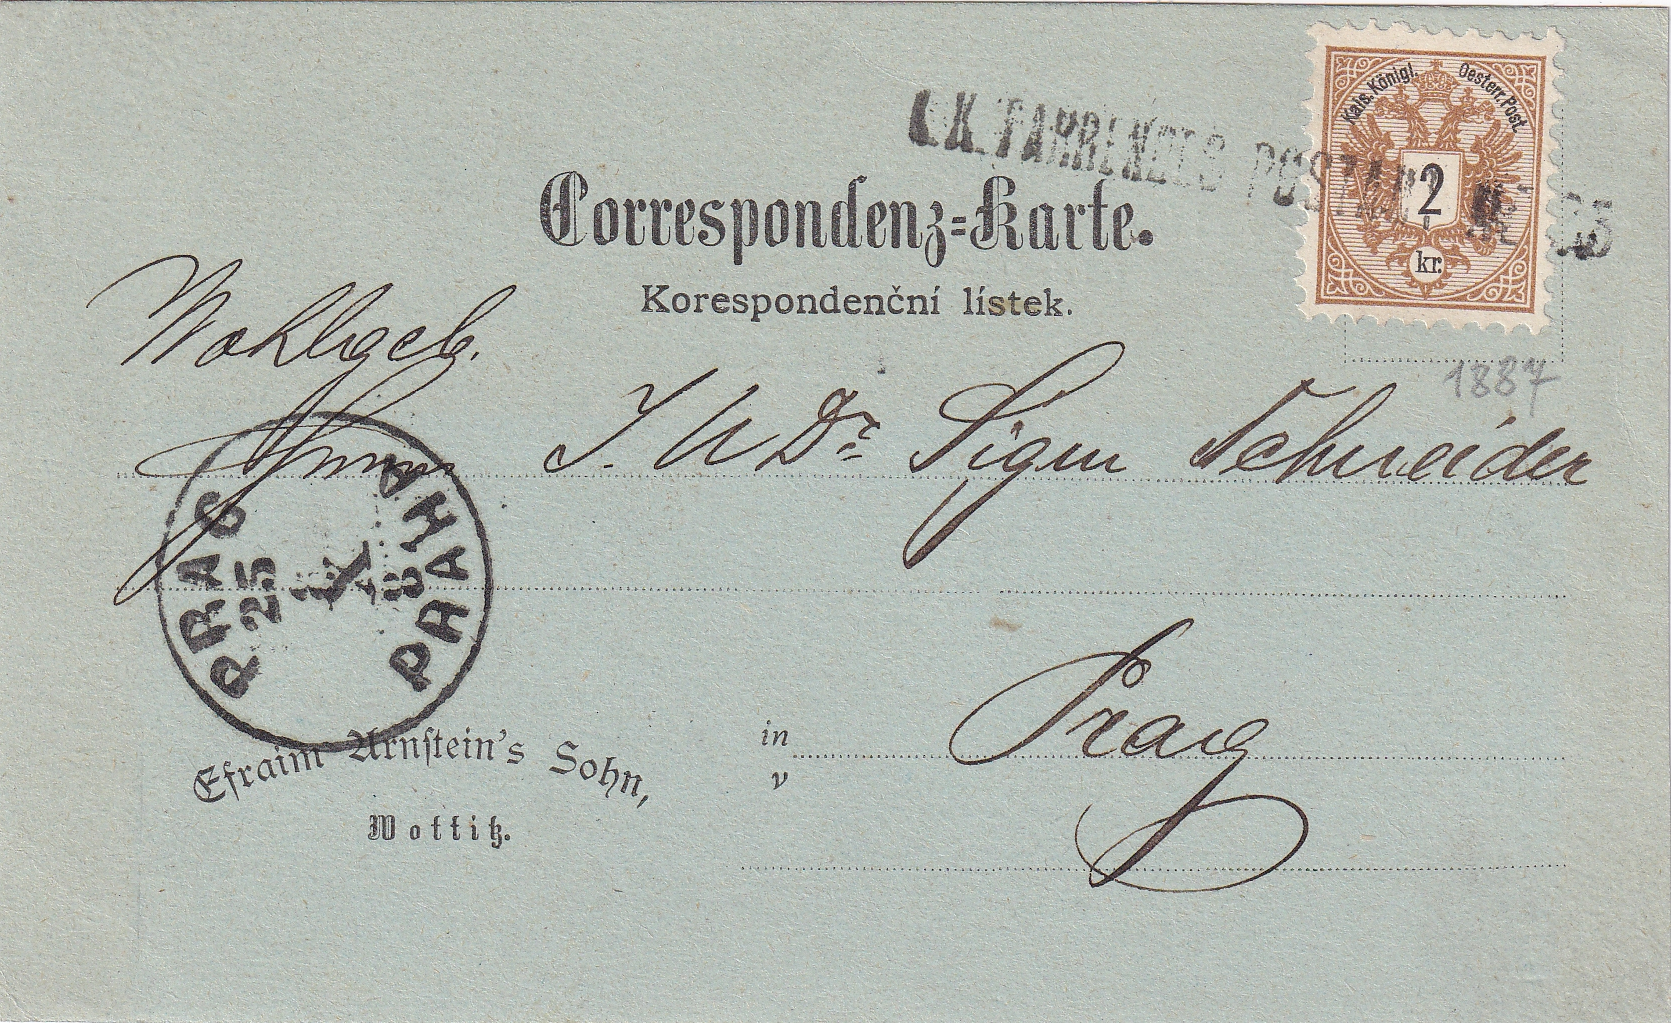 Kais. Königl. Oesterr. Post.
2
kr.
K.K. FAHRENDES POSTAMT
Correspondenz-Karte.
Korespondenční lístek.
1887
Wohlgeb.
J. U Dr Sigm Schneider
PRAG
25
PRAHA
in Prag
v
Efraim Arnstein's Sohn,
Wottitz.